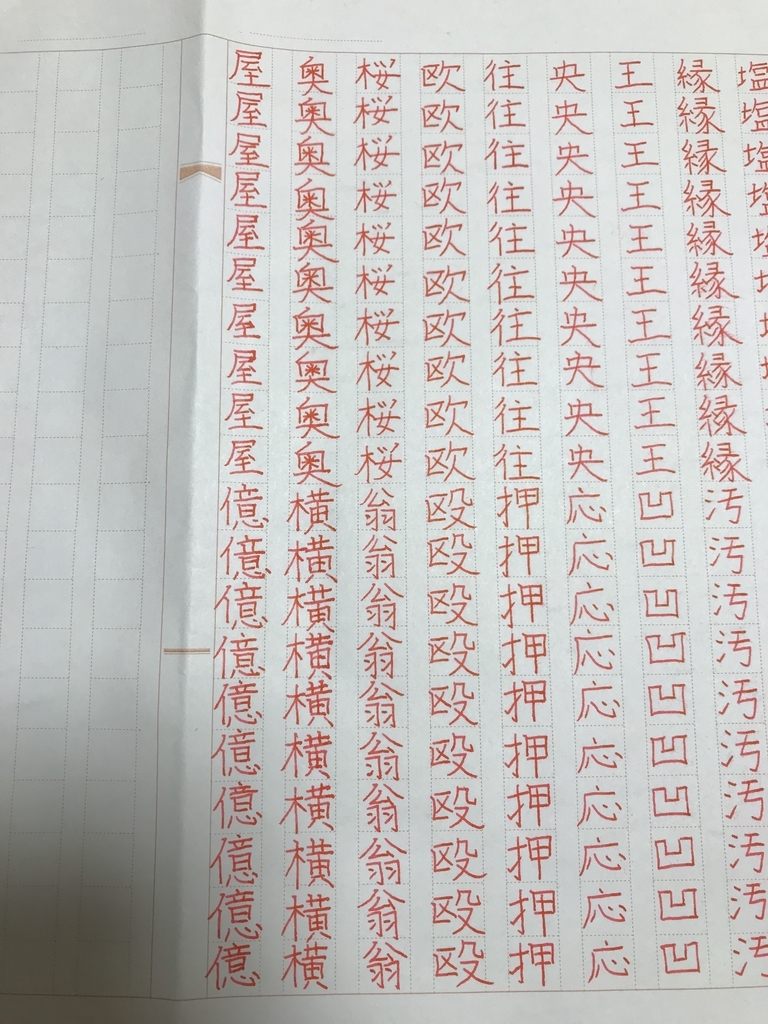 塩塩塩塩塩
縁縁縁縁縁縁縁縁縁縁汚汚汚汚汚汚汚汚汚汚
王王王王王王王王王王凹凹凹凹凹凹凹凹凹凹
央央央央央央央央央央応応応応応応応応応応
往往往往往往往往往往押押押押押押押押押押
欧欧欧欧欧欧欧欧欧欧殴殴殴殴殴殴殴殴殴殴
桜桜桜桜桜桜桜桜桜桜翁翁翁翁翁翁翁翁翁翁
奥奥奥奥奥奥奥奥奥奥横横横横横横横横横横
屋屋屋屋屋屋屋屋屋屋億億億億億億億億億億